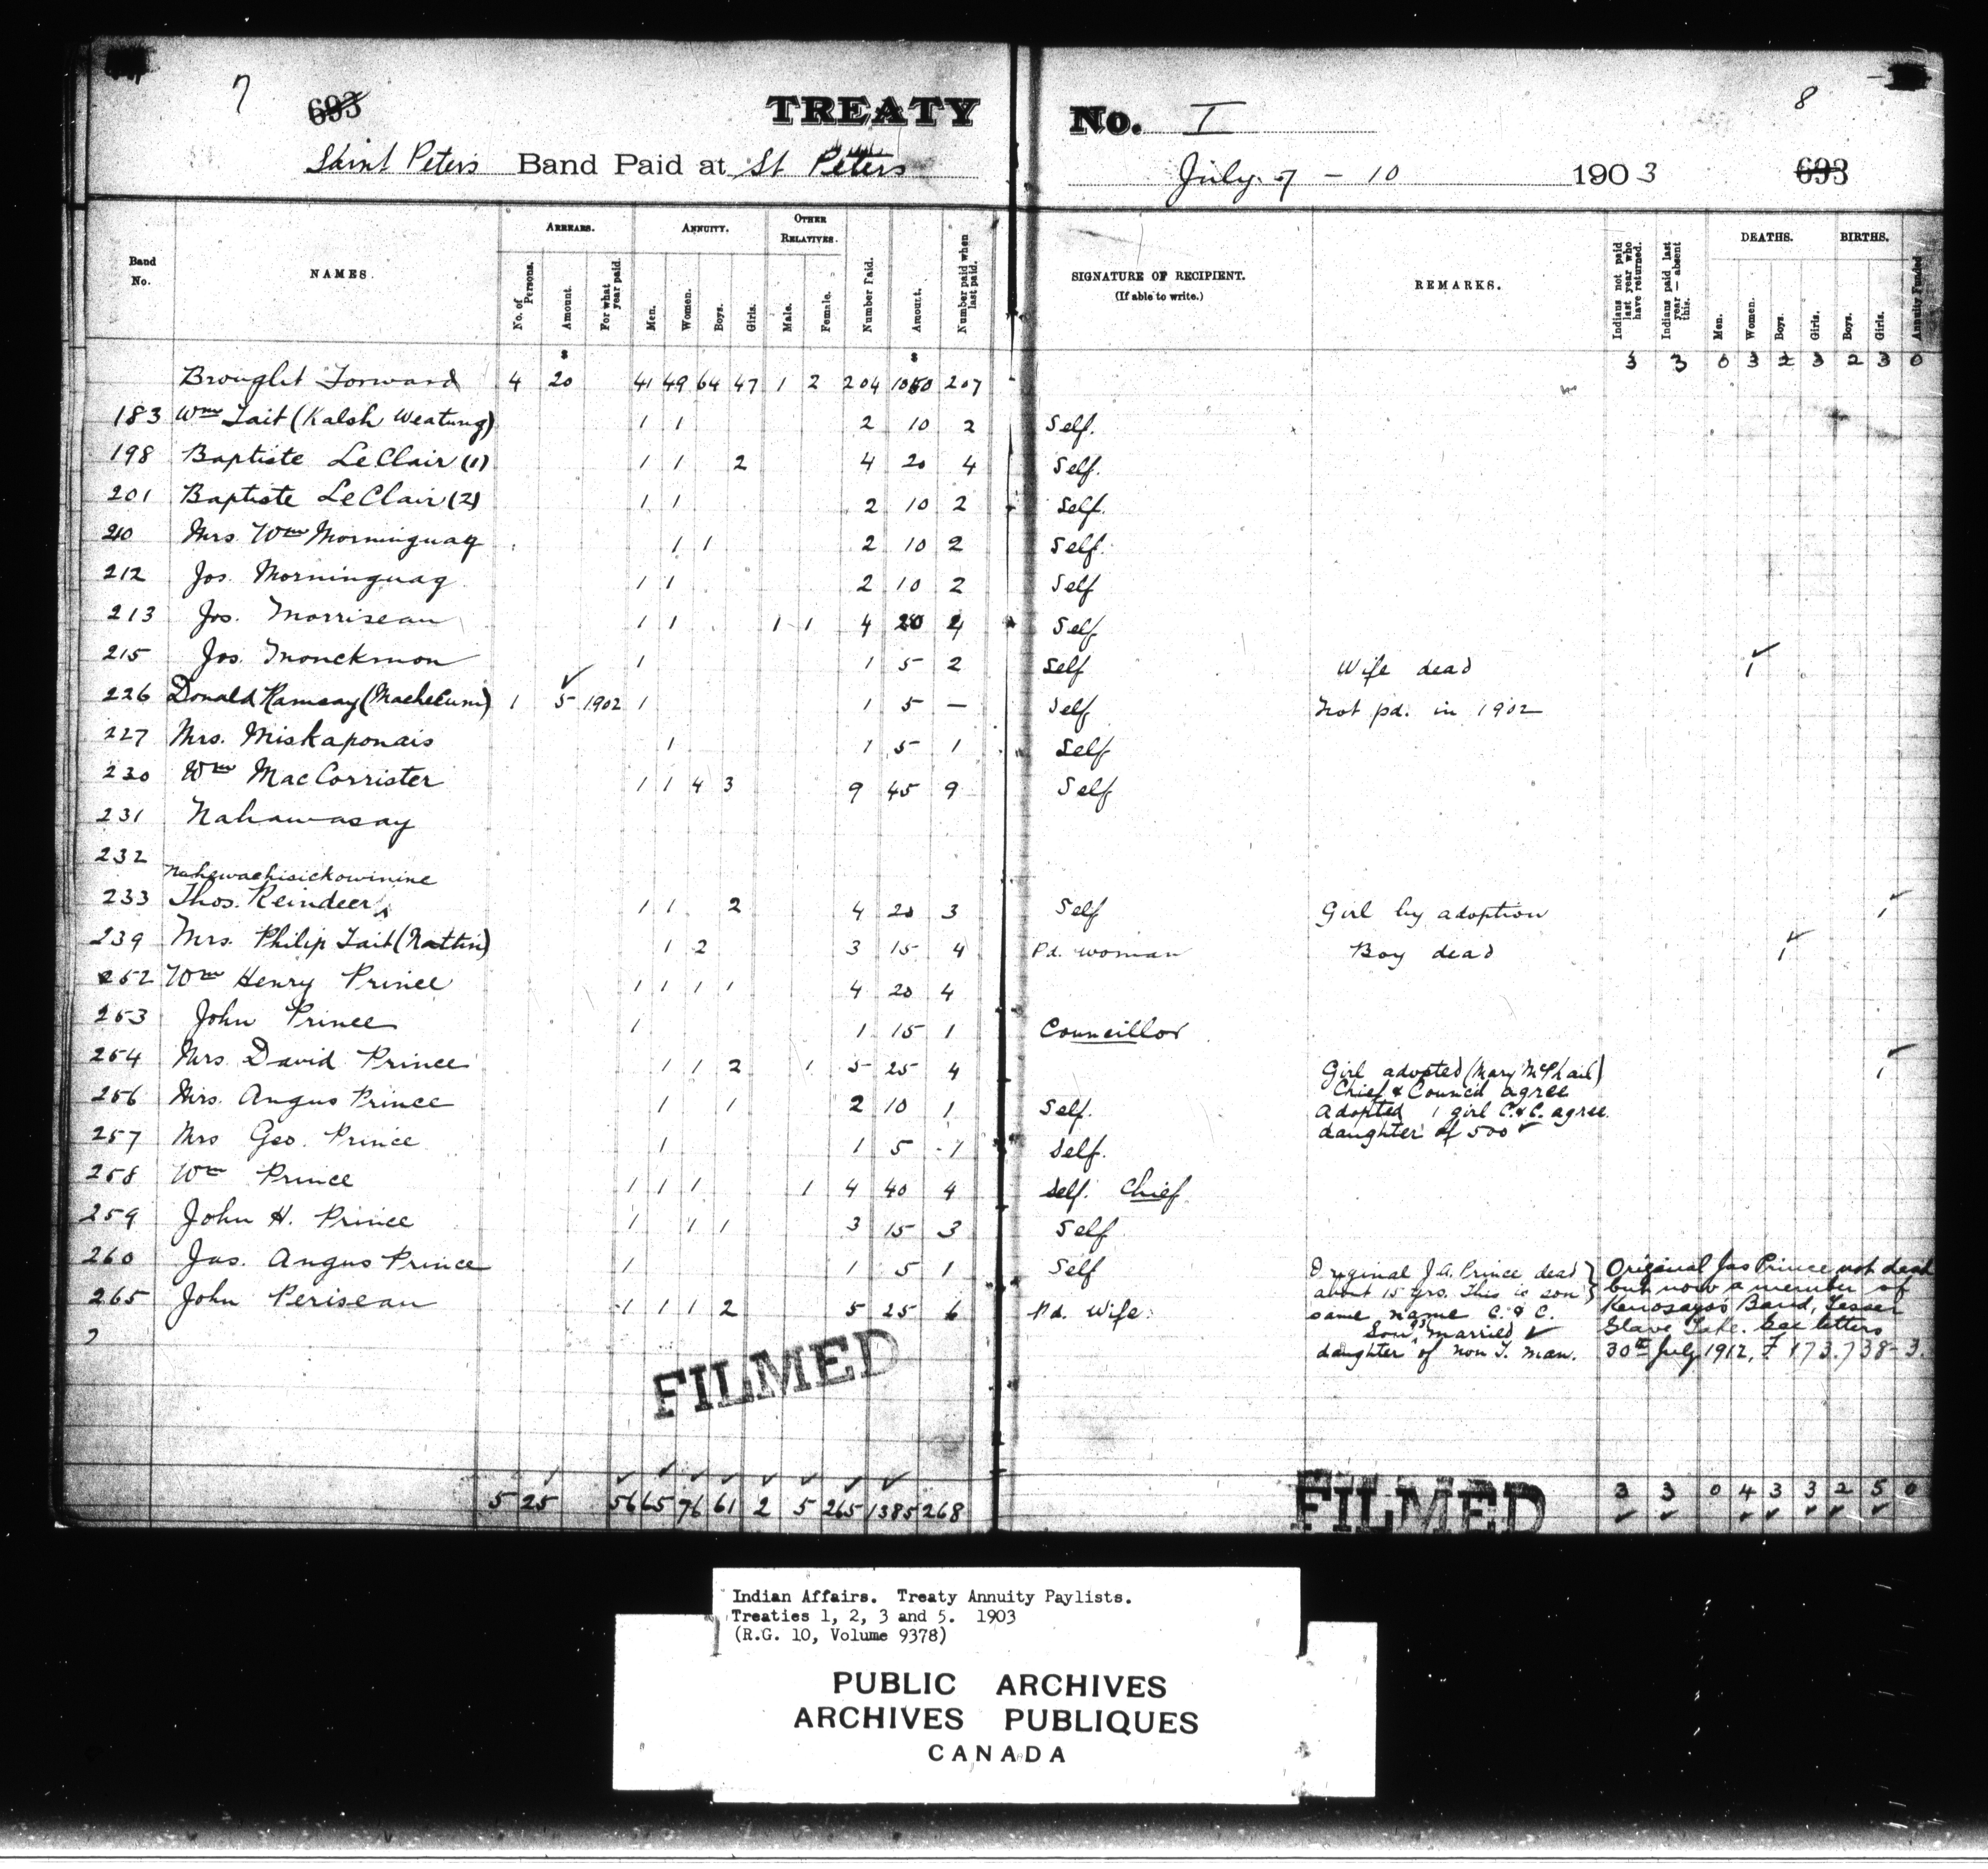 7 693 TREATY No. I 8
Saint Peters Band Paid at St Peters July 7 - 10 1903 693
Band No. NAMES. ARREARS. No. of Persons. Amount. For what year paid. ANNUITY. Men. Women. Boys. Girls. OTHER RELATIVES. Male. Female. Number Paid. Amount. Number paid when last paid. SIGNATURE OF RECIPIENT. (If able to write.) REMARKS. Indians not paid last year who have returned. Indians paid last year — absent this. DEATHS. Men. Women. Boys. Girls. BIRTHS. Boys. Girls. Annuity Funded
$ $
Brought Forward 4 20 41 49 64 47 1 2 204 1050 207 3 3 0 3 2 3 2 3 0
183 Wm Tait (Kalsh Weatung) 1 1 2 10 2 Self.
198 Baptiste LeClair (1) 1 1 2 4 20 4 Self.
201 Baptiste LeClair (2) 1 1 2 10 2 Self.
210 Mrs Wm Morninguay 1 1 2 10 2 Self.
212 Jos. Morninguay 1 1 2 10 2 Self
213 Jos. Morriseau 1 1 1 1 4 20 4 Self
215 Jos. Monckmon 1 1 5 2 Self Wife dead 1
226 Donald Ramsay (Machecum) 1 5 1902 1 1 5 — Self Not pd. in 1902
227 Mrs. Miskaponais 1 1 5 1 Self
230 Wm MacCorrister 1 1 4 3 9 45 9 Self
231 Nahawasay
232 Nahewachisickowinine
233 Thos. Reindeer 1 1 2 4 20 3 Self Girl by adoption 1
239 Mrs. Philip Tait (Nattin) 1 2 3 15 4 Pd. woman Boy dead 1
252 Wm Henry Prince 1 1 1 1 4 20 4
253 John Prince 1 1 15 1 Councillor
254 Mrs. David Prince 1 1 2 1 5 25 4 Girl adopted (Mary McPhail) 1
Chief & Council agree
256 Mrs. Angus Prince 1 1 2 10 1 Self. Adopted 1 girl C. & C. agree.
daughter of 500 ✓
257 Mrs Geo. Prince 1 1 5 1 Self.
258 Wm Prince 1 1 1 1 4 40 4 Self. Chief
259 John H. Prince 1 1 1 3 15 3 Self
260 Jas. Angus Prince 1 1 5 1 Self Original J. A. Prince dead
about 15 yrs. This is son
same name C. & C.
Original Jas Prince not dead
but now a member of
Kenosayos Band, Lesser
Slave Lake. See letters
30th July 1912, F 173.738-3.
265 John Periseau 1 1 1 2 5 25 6 Pd. Wife. Son, married ✓
daughter of non T. man.
?
FILMED
5 25 56 65 76 61 2 5 265 1385 268 FILMED 3 3 0 4 3 3 2 5 0
Indian Affairs. Treaty Annuity Paylists.
Treaties 1, 2, 3 and 5. 1903
(R.G. 10, Volume 9378)
PUBLIC ARCHIVES
ARCHIVES PUBLIQUES
CANADA